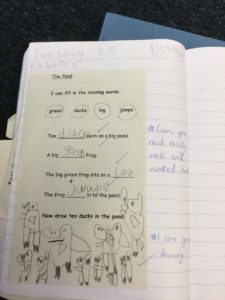 The Pond
I can fit in the missing words.
green ducks log jumps
Ten ducs swim on a big pond.
A big green frog.
The big green frog sits on a log
The frog jumps in to the pond.
Now draw ten ducks in the pond;
you
read really
well and
worked
I love your
drawing!